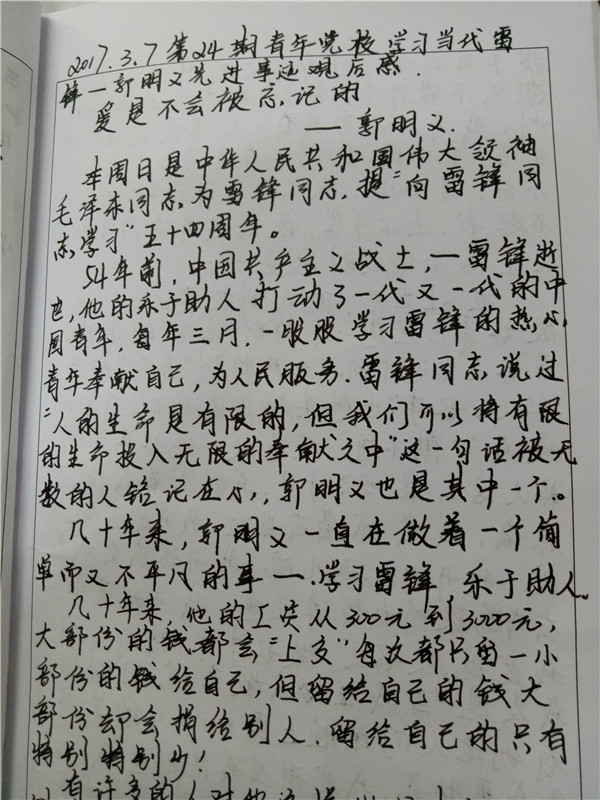 2017.3.7 第24期青年党校学习当代雷
锋一郭明义先进事迹观后感.
爱是不会被忘记的
——郭明义.
本周日是中华人民共和国伟大领袖
毛泽东同志为雷锋同志,提"向雷锋同
志学习"五十四周年。
54年前,中国共产主义战士,一雷锋逝
世,他的乐于助人打动了一代又一代的中
国青年,每年三月,一股股学习雷锋的热心
青年奉献自己,为人民服务.雷锋同志说过
"人的生命是有限的,但我们可以将有限
的生命投入无限的奉献之中"这一句话被无
数的人铭记在心,郭明义也是其中一个。
几十年来,郭明义一直在做着一个简
单而又不平凡的事一学习雷锋,乐于助人.
几十年来,他的工资从300元到3000元,
大部份的钱都会"上交"每次都只留一小
部份的钱给自己,但留给自己的钱大
部份却会捐给别人.留给自己的只有
特别特别少!
有许多的人对他